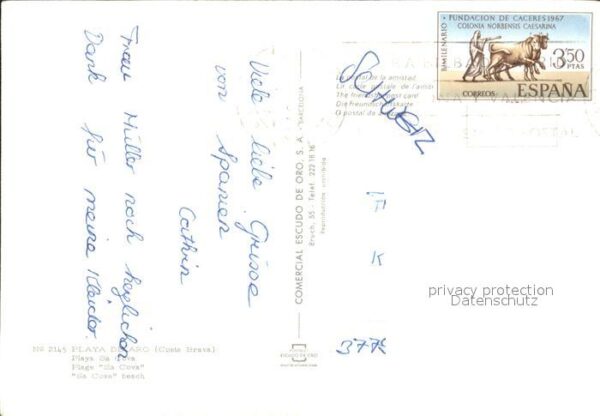 Viele liebe Grüsse
von Spanien
Cathrin
Frau Müller noch herzlichen
Dank für meine Kleider.
No 2145 PLAYA DE ARO (Costa Brava)
Playa Sa Cova
Plage "Sa Cova"
"Sa Cova" beach
COMERCIAL ESCUDO DE ORO, S. A. - BARCELONA
Reproducción prohibida
ESCUDO DE ORO
La postal de la amistad
La carte postale de l'amitié
The friendship post card
Die Freundschaftskarte
O postal da
BIMILENARIO
FUNDACION DE CACERES 1967
COLONIA NORBENSIS CAESARINA
3'50
PTAS
CORREOS
ESPAÑA
SCHWEIZ
privacy protection
Datenschutz